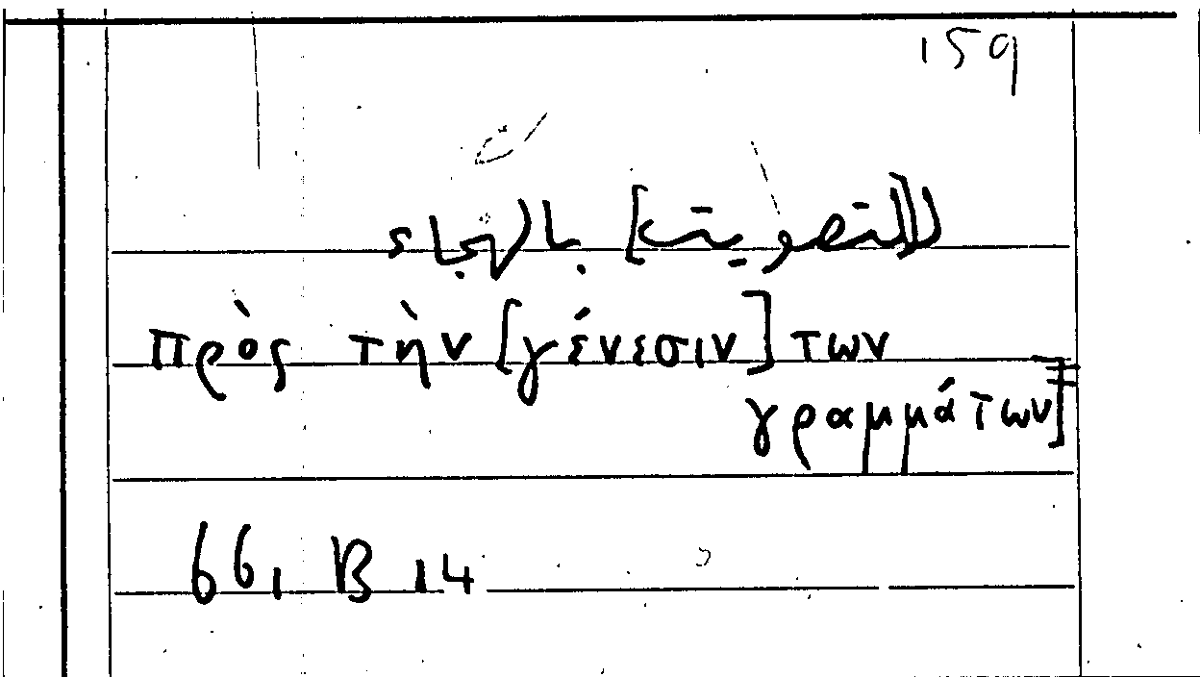 159
[للتصويت] بالهجاء
πρὸς τὴν [γένεσιν] των
γραμμάτων]
661 B 14